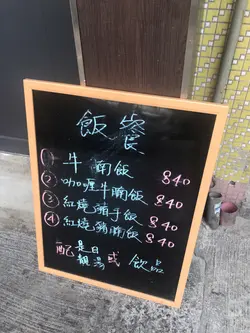 飯餐
① 牛腩飯 $40
② 咖喱牛腩飯 $40
③ 紅燒豬手飯 $40
④ 紅燒豬腩飯 $40
配 是日靚湯 或 飲品